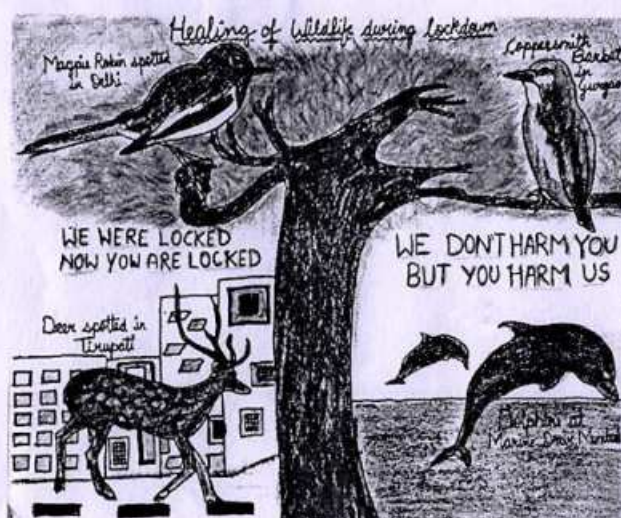 Healing of Wildlife during lockdown
Magpie Robin spotted
in Delhi
Coppersmith
Barbet
in
Gurgaon
WE WERE LOCKED
NOW YOU ARE LOCKED
WE DON'T HARM YOU
BUT YOU HARM US
Deer spotted in
Tirupati
Dolphins at
Marine Drive, Mumbai